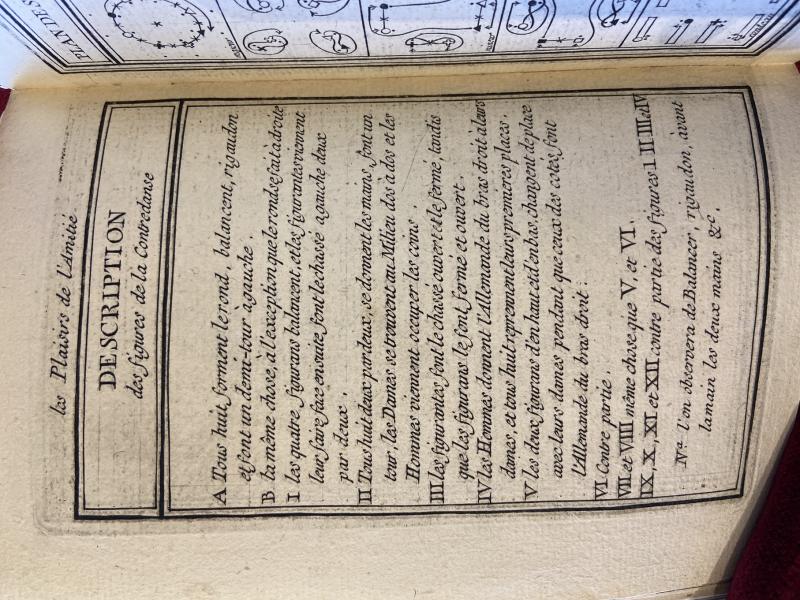 les Plaisirs de l'Amitié
DESCRIPTION
des figures de la Contredanse
A Tous huit forment le rond, balancent, rigaudon
et font un demi-tour agauche.
B la même chose, à l'exception que le rond se fait à droite
I les quatre figurans balancent, et les figurantes viennent
leur faire face ensuite, font le chassé agauche deux
par deux.
II Tous huit deux par deux, se donnent les mains, font un
tour, les Dames se trouvent au Milieu dos à dos et les
Hommes viennent occuper les coins.
III les figurantes font le chassé ouvert et le fermé, tandis
que les figurans le font fermé et ouvert.
IV les Hommes donnent l'Allemande du bras droit à leurs
dames, et tous huit reprennent leurs premieres places.
V les deux figurans d'en haut et d'en bas, changent de place
avec leurs dames pendant que ceux des cotés, font
l'Allemande du bras droit:
VI Contre partie.
VII et VIII même chose que V. et VI.
IX, X, XI et XII contre partie des figures I II III et IV
Nª l'on observera de Balancer, rigaudon, avant
lamain les deux mains &c.
PLAN DE S